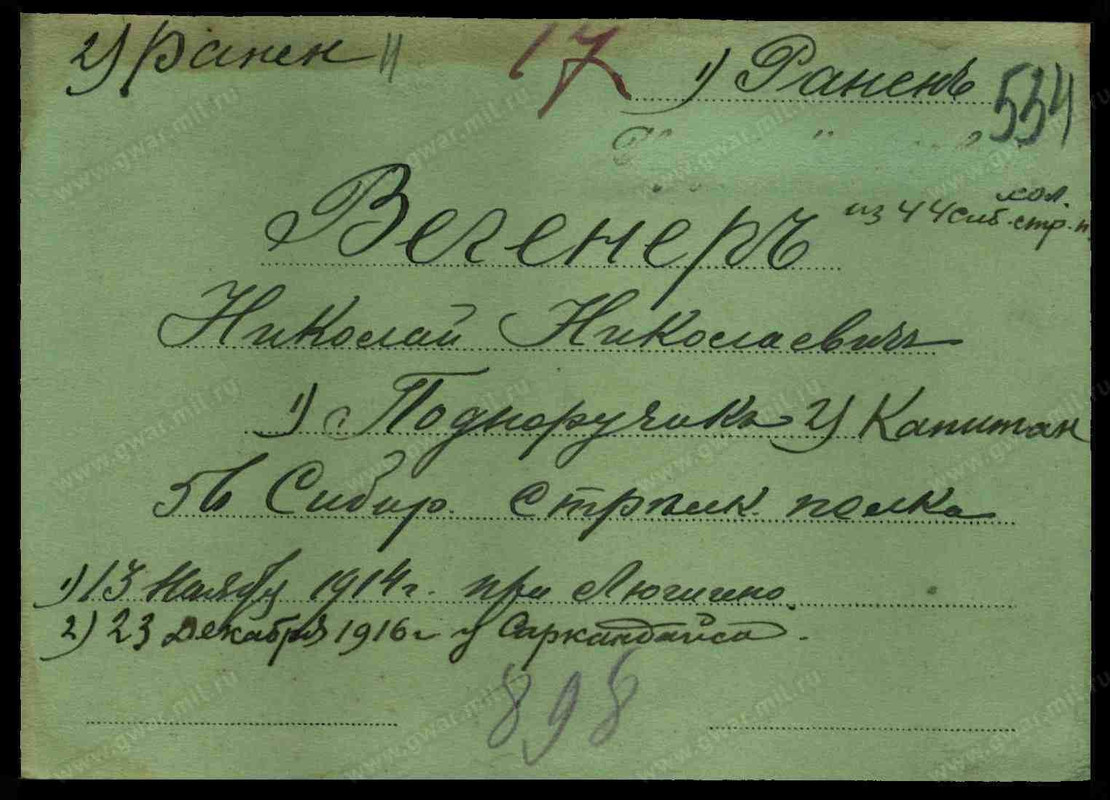 2) ранен 17 1) Раненъ 554
Вегенеръ из 44 сиб. стр. п.
Николай Николаевичъ
1) Подпоручикъ 2) Капитан
Сибир. стрѣлк. полка
1) 13 Ноябр 1914 г. при
2) 23 Декабря 1916 г у
898
www.gwar.mil.ru